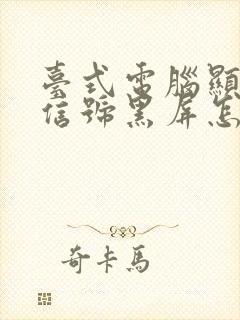 臺式電腦顯
信號黑屏怎
奇卡馬